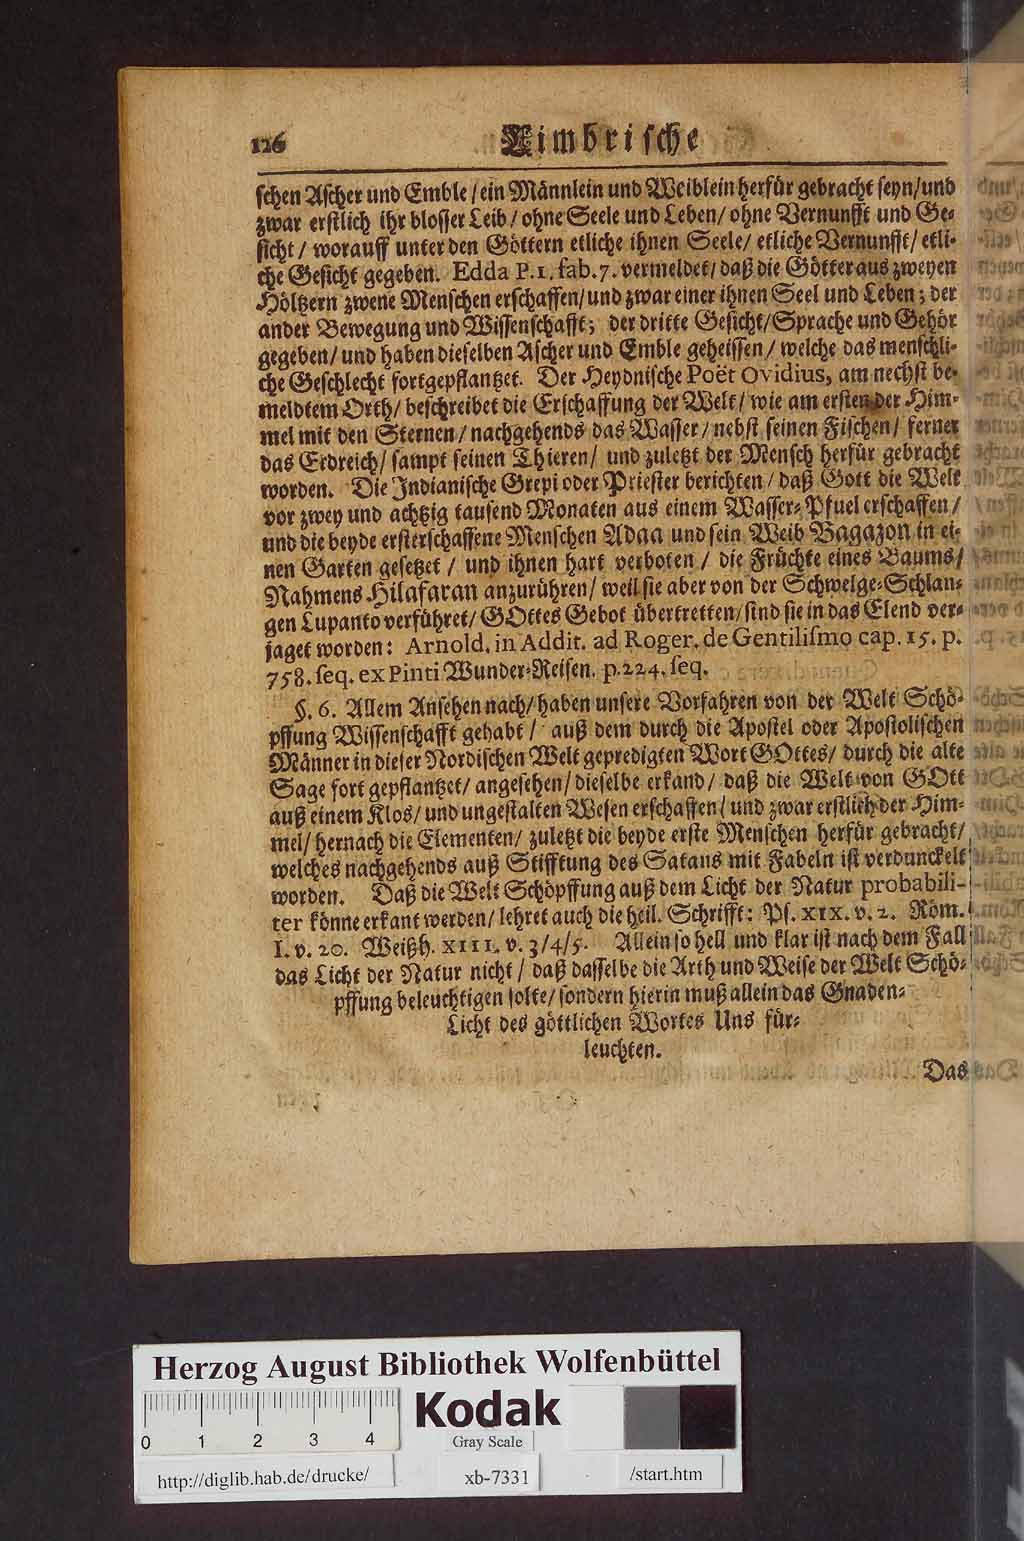 126 Cimbrische
schen Ascher und Emble / ein Männlein und Weiblein herfür gebracht seyn/und
zwar erstlich ihr blosser Leib / ohne Seele und Leben / ohne Vernunfft und Ge-
sicht / worauff unter den Göttern etliche ihnen Seele / etliche Vernunfft / etli-
che Gesicht gegeben. Edda P. 1. fab. 7. vermeldet / daß die Götter aus zweyen
Höltzern zwene Menschen erschaffen / und zwar einer ihnen Seel und Leben ; der
ander Bewegung und Wissenschafft; der dritte Gesicht / Sprache und Gehör
gegeben / und haben dieselben Ascher und Emble geheissen / welche das menschli-
che Geschlecht fortgepflantzet. Der Heydnische Poët Ovidius, am nechst be-
meldtem Orth / beschreibet die Erschaffung der Welt / wie am ersten der Him-
mel mit den Sternen / nachgehends das Wasser / nebst seinen Fischen / ferner
das Erdreich / sampt seinen Thieren / und zuletzt der Mensch herfür gebracht
worden. Die Indianische Grepi oder Priester berichten / daß Gott die Welt
vor zwey und achtzig tausend Monaten aus einem Wasser-Pfuel erschaffen /
und die beyde ersterschaffene Menschen Adaa und sein Weib Bagazon in ei-
nen Garten gesetzet / und ihnen hart verboten / die Früchte eines Baums /
Nahmens Hilafaran anzurühren / weil sie aber von der Schwelge-Schlan-
gen Lupanto verführet / GOttes Gebot übertretten / sind sie in das Elend ver-
jaget worden: Arnold. in Addit. ad Roger. de Gentilismo cap. 15. p.
758. seq. ex Pinti Wunder-Reisen. p. 224. seq.
§. 6. Allem Ansehen nach / haben unsere Vorfahren von der Welt Schö-
pffung Wissenschafft gehabt / auß dem durch die Apostel oder Apostolischen
Männer in dieser Nordischen Welt gepredigten Wort GOttes / durch die alte
Sage fort gepflantzet / angesehen / dieselbe erkand / daß die Welt von GOtt
auß einem Klos / und ungestalten Wesen erschaffen / und zwar erstlich der Him-
mel / hernach die Elementen / zuletzt die beyde erste Menschen herfür gebracht /
welches nachgehends auß Stifftung des Satans mit Fabeln ist verdunckelt
worden. Daß die Welt Schöpffung auß dem Licht der Natur probabili-
ter könne erkant werden / lehret auch die heil. Schrifft: Ps. XIX. v. 2. Röm.
I. v. 20. Weißh. XIII. v. 3/4/5. Allein so hell und klar ist nach dem Fall
das Licht der Natur nicht / daß dasselbe die Arth und Weise der Welt Schö-
pffung beleuchtigen solte / sondern hierin muß allein das Gnaden-
Licht des göttlichen Wortes Uns für-
leuchten.
Das
Herzog August Bibliothek Wolfenbüttel
Kodak
0 1 2 3 4
Gray Scale
http://diglib.hab.de/drucke/ xb-7331 /start.htm